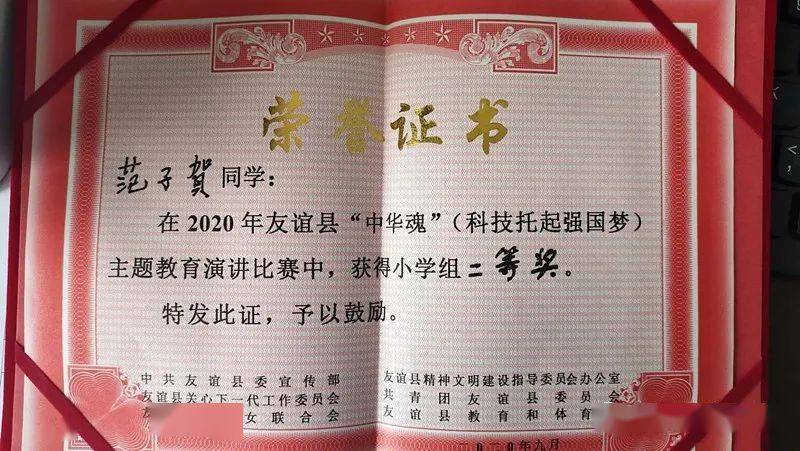 荣誉证书
范子贺同学：
在2020年友谊县“中华魂”（科技托起强国梦）
主题教育演讲比赛中，获得小学组二等奖。
特发此证，予以鼓励。
中共友谊县委宣传部
友谊县关心下一代工作委员会
友 女联合会
友谊县精神文明建设指导委员会办公室
共青团友谊县委员会
友谊县教育和体育
二〇二〇年九月